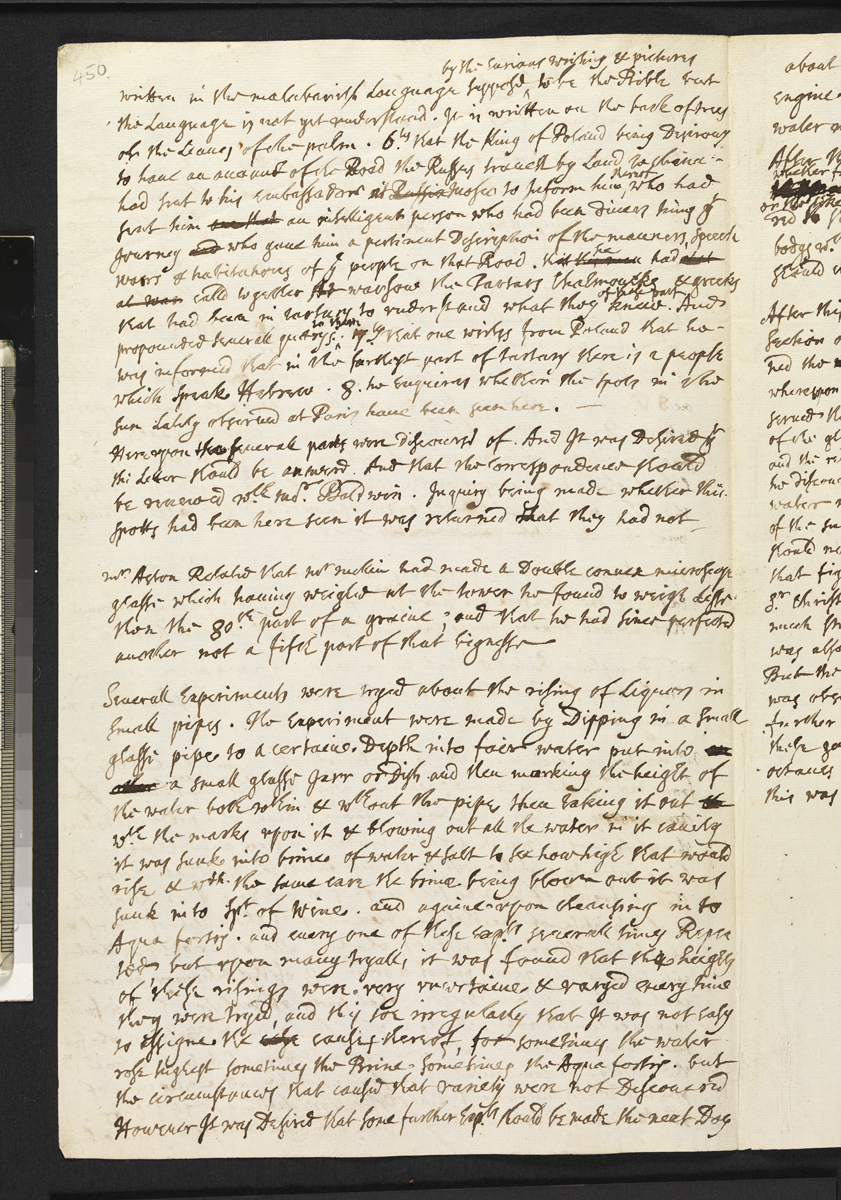 450.
by the Curious writing & pictures
written in the malabarish Language supposd to be the Bible but
the Language is not yet understood. It is written on the back of trees
or the Leaves of the palm. 6.ly that the King of Poland being Desirous
to have an account of the Road the Russes travell by Land to china
had sent to his Embassador at Russia Mosco to Inform him thereof, who had
sent him an intelligent person who had been Divers times yt
Journey and who gave him a pertinent Description of the manners, speech
& habitations of ye people on that Road. he had
calld together at warsow the Tartars & greeks
that had been in tartary to understand what they knew of those parts. And
propounded severall querys to them. 7ly that one writes from Poland that he
was informed that in the farthest part of tartary there is a people
which speake Hebrew. 8. he Enquires whether the spots in the
sun Lately observed at Paris have been seen here.
Hereupon severall parts were discoursd of. And It was Desired yt
the Letter should be answerd. And that the Correspondence should
be renewed wth mr. Baldwin. Inquiry being made whether this
spotts had been here seen it was returned that they had not
mr Aston Related that mr mellin had made a Double convex microscope
glasse which having weighd at the tower he found to weigh Lesse
then the 80th part of a graine; and that he had since perfected
another not a fift part of that bignesse
Severall Experiments were tryed about the rising of Liquors in
small pipes. The Experiment were made by Dipping in a small
glasse pipe to a certaine Depth into fair water put into
a small glasse Jarr or Dish and then marking the height of
the water both wthin & wthout the pipe, then taking it out
wth the marks upon it & blowing out all the water in it cavity
it was sunk into brine of water & salt to see how high that would
rise & wth the same care the brine being blown out it was
sunk into Spt. of wine. and againe upon cleansing in to
Aqua fortis. and every one of these Expts severall times Repea
ted but upon many tryalls it was found that the heights
of these risings were very uncertaine & varyed every time
they were tryed, and this soe irregularly that It was not easy
to assigne the causes thereof, for sometimes the water
rose highest sometimes the Brine sometimes the Aqua fortis. but
the circumstances that causd that variety were not Discovered
However It was Desired that some further Expts should be made the next Day
about
engine
water
After th
whether f
red to
bodys
should
After this
section o
ned the
whereupon
served th
of the gl
and the re
he discou
water
of the su
should no
that fig
Sr Christ
much
was also
But the
was obse
further
these
octaves
this was